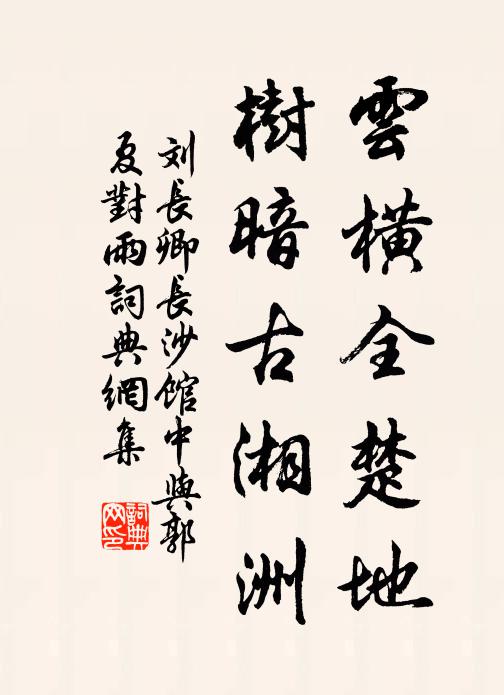 雲橫全楚地
樹暗古湘洲
刘長卿長沙馆中與郭
夏對雨詞典網集
詞典网印